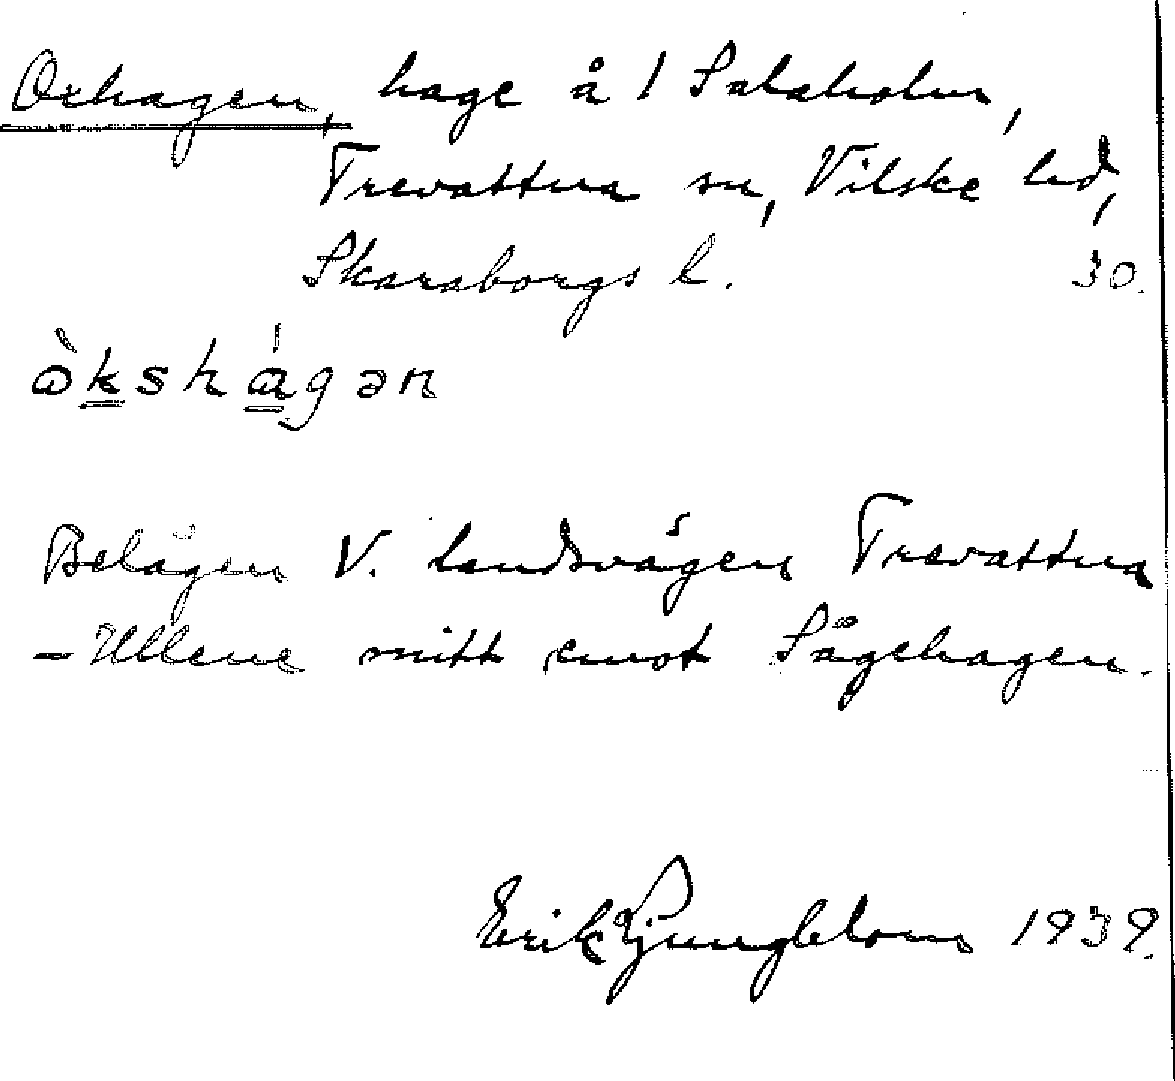 Oxhagen, hage å 1 Salaholm,
Trevattna sn, Vilske hd,
Skaraborgs l. 30.
òkshágən
Belägen V. landsvägen Trevattna
– Ullene mitt emot Sågehagen.
Erik Ljungblom 1939.